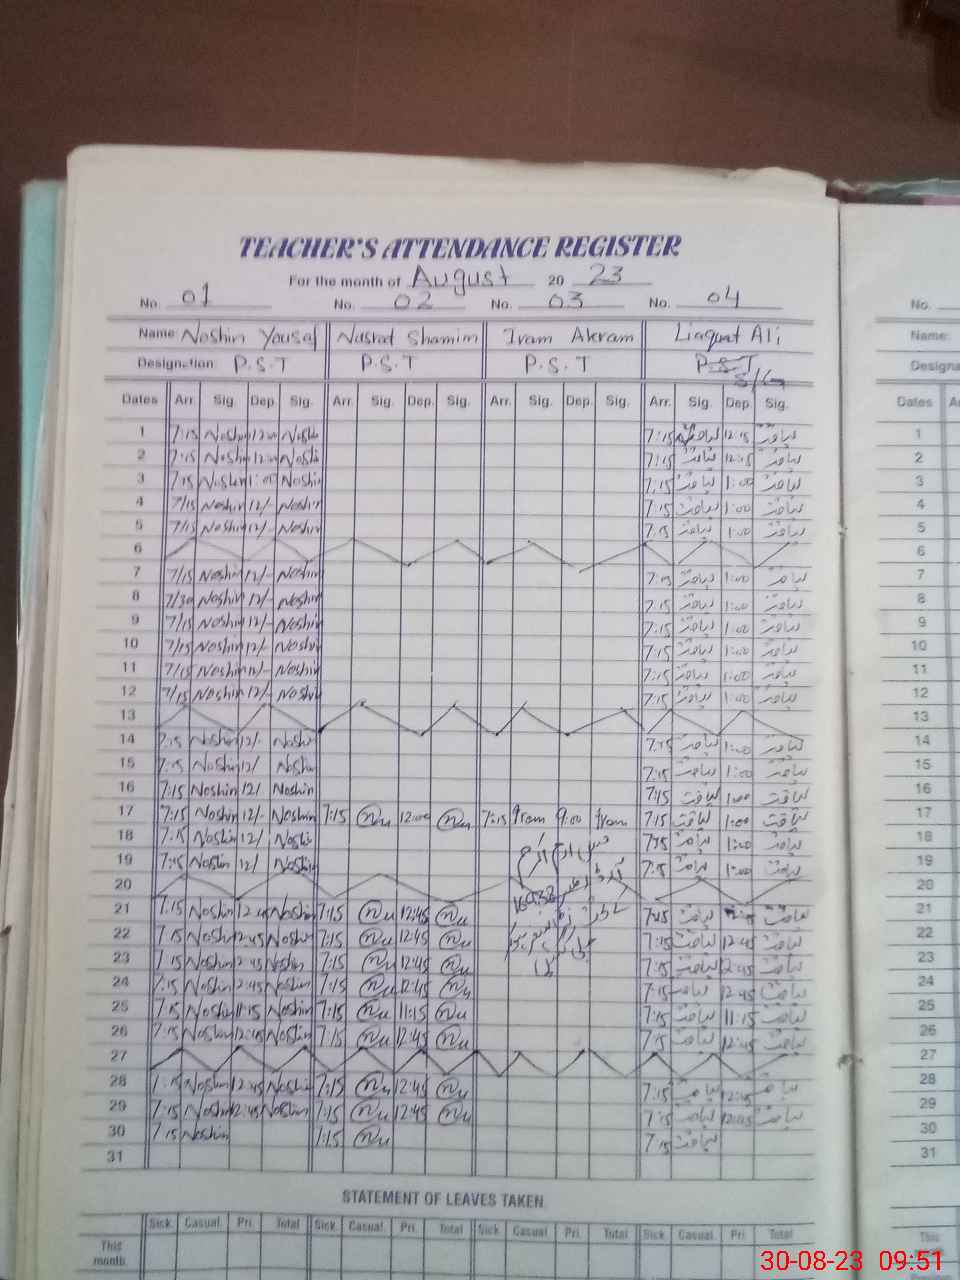 TEACHER'S ATTENDANCE REGISTER
For the month of August 20 23
No. 01 No. 02 No. 03 No. 04 No.
Name: Noshin Yousaf Nasrat Shamim Iram Akram Liaquat Ali Name:
Designation: P.S.T P.S.T P.S.T P.S.T
S/G
Dates Arr. Sig. Dep. Sig. Arr. Sig. Dep. Sig. Arr. Sig. Dep. Sig. Arr. Sig. Dep. Sig. Dates
1 7:15 Noshin Noshin 7:15 لیاقت 12:15 لیاقت 1
2 7:15 Noshin Noshin 7:15 لیاقت 12:15 لیاقت 2
3 7:15 Noshin 1:00 Noshin 7:15 لیاقت 1:00 لیاقت 3
4 7/15 Noshin 12/- Noshin 7:15 لیاقت 1:00 لیاقت 4
5 7/15 Noshin 12/- Noshin 7:15 لیاقت 1:00 لیاقت 5
6 6
7 7/15 Noshin 12/- Noshin لیاقت 1:00 لیاقت 7
8 7/30 Noshin 12/- Noshin 7:15 لیاقت 1:00 لیاقت 8
9 7/15 Noshin 12/- Noshin 7:15 لیاقت 1:00 لیاقت 9
10 7/15 Noshin 12/- Noshin 7:15 لیاقت 1:00 لیاقت 10
11 7/15 Noshin 12/- Noshin 7:15 لیاقت 1:00 لیاقت 11
12 7/15 Noshin 12/- Noshin 7:15 لیاقت 1:00 لیاقت 12
13 13
14 7:15 Noshin 12/- Noshin 7:15 لیاقت 1:00 لیاقت 14
15 7:15 Noshin 12/ Noshin 7:15 لیاقت 1:00 لیاقت 15
16 7:15 Noshin 12/ Noshin 7:15 لیاقت 1:00 لیاقت 16
17 7:15 Noshin 12/- Noshin 7:15 12:00 7:15 Iram 9:00 Iram 7:15 لیاقت 1:00 لیاقت 17
18 7:15 Noshin 12/ Noshin 7:15 لیاقت 1:00 لیاقت 18
19 7:15 Noshin 12/ Noshin 7:15 لیاقت 1:00 لیاقت 19
20 20
21 7:15 Noshin 12:45 Noshin 7:15 12:45 7:15 لیاقت لیاقت 21
22 7:15 Noshin 12:45 Noshin 7:15 12:45 7:15 لیاقت 12:45 لیاقت 22
23 7:15 Noshin 12:45 Noshin 7:15 12:45 7:15 لیاقت 12:45 لیاقت 23
24 7:15 Noshin 12:45 Noshin 7:15 12:45 7:15 لیاقت 12:45 لیاقت 24
25 7:15 Noshin 11:15 Noshin 7:15 11:15 7:15 لیاقت 11:15 لیاقت 25
26 7:15 Noshin 12:45 Noshin 7:15 12:45 7:15 لیاقت 12:45 لیاقت 26
27 27
28 7:15 Noshin 12:45 Noshin 7:15 12:45 7:15 لیاقت 12:45 لیاقت 28
29 7:15 Noshin 12:45 Noshin 7:15 12:45 7:15 لیاقت 12:45 لیاقت 29
30 7:15 Noshin 7:15 7:15 لیاقت 30
31 31
STATEMENT OF LEAVES TAKEN.
Sick. Casual. Pri. Total Sick. Casual. Pri. Total Sick. Casual. Pri. Total Sick. Casual. Pri. Total
This month. This
30-08-23 09:51